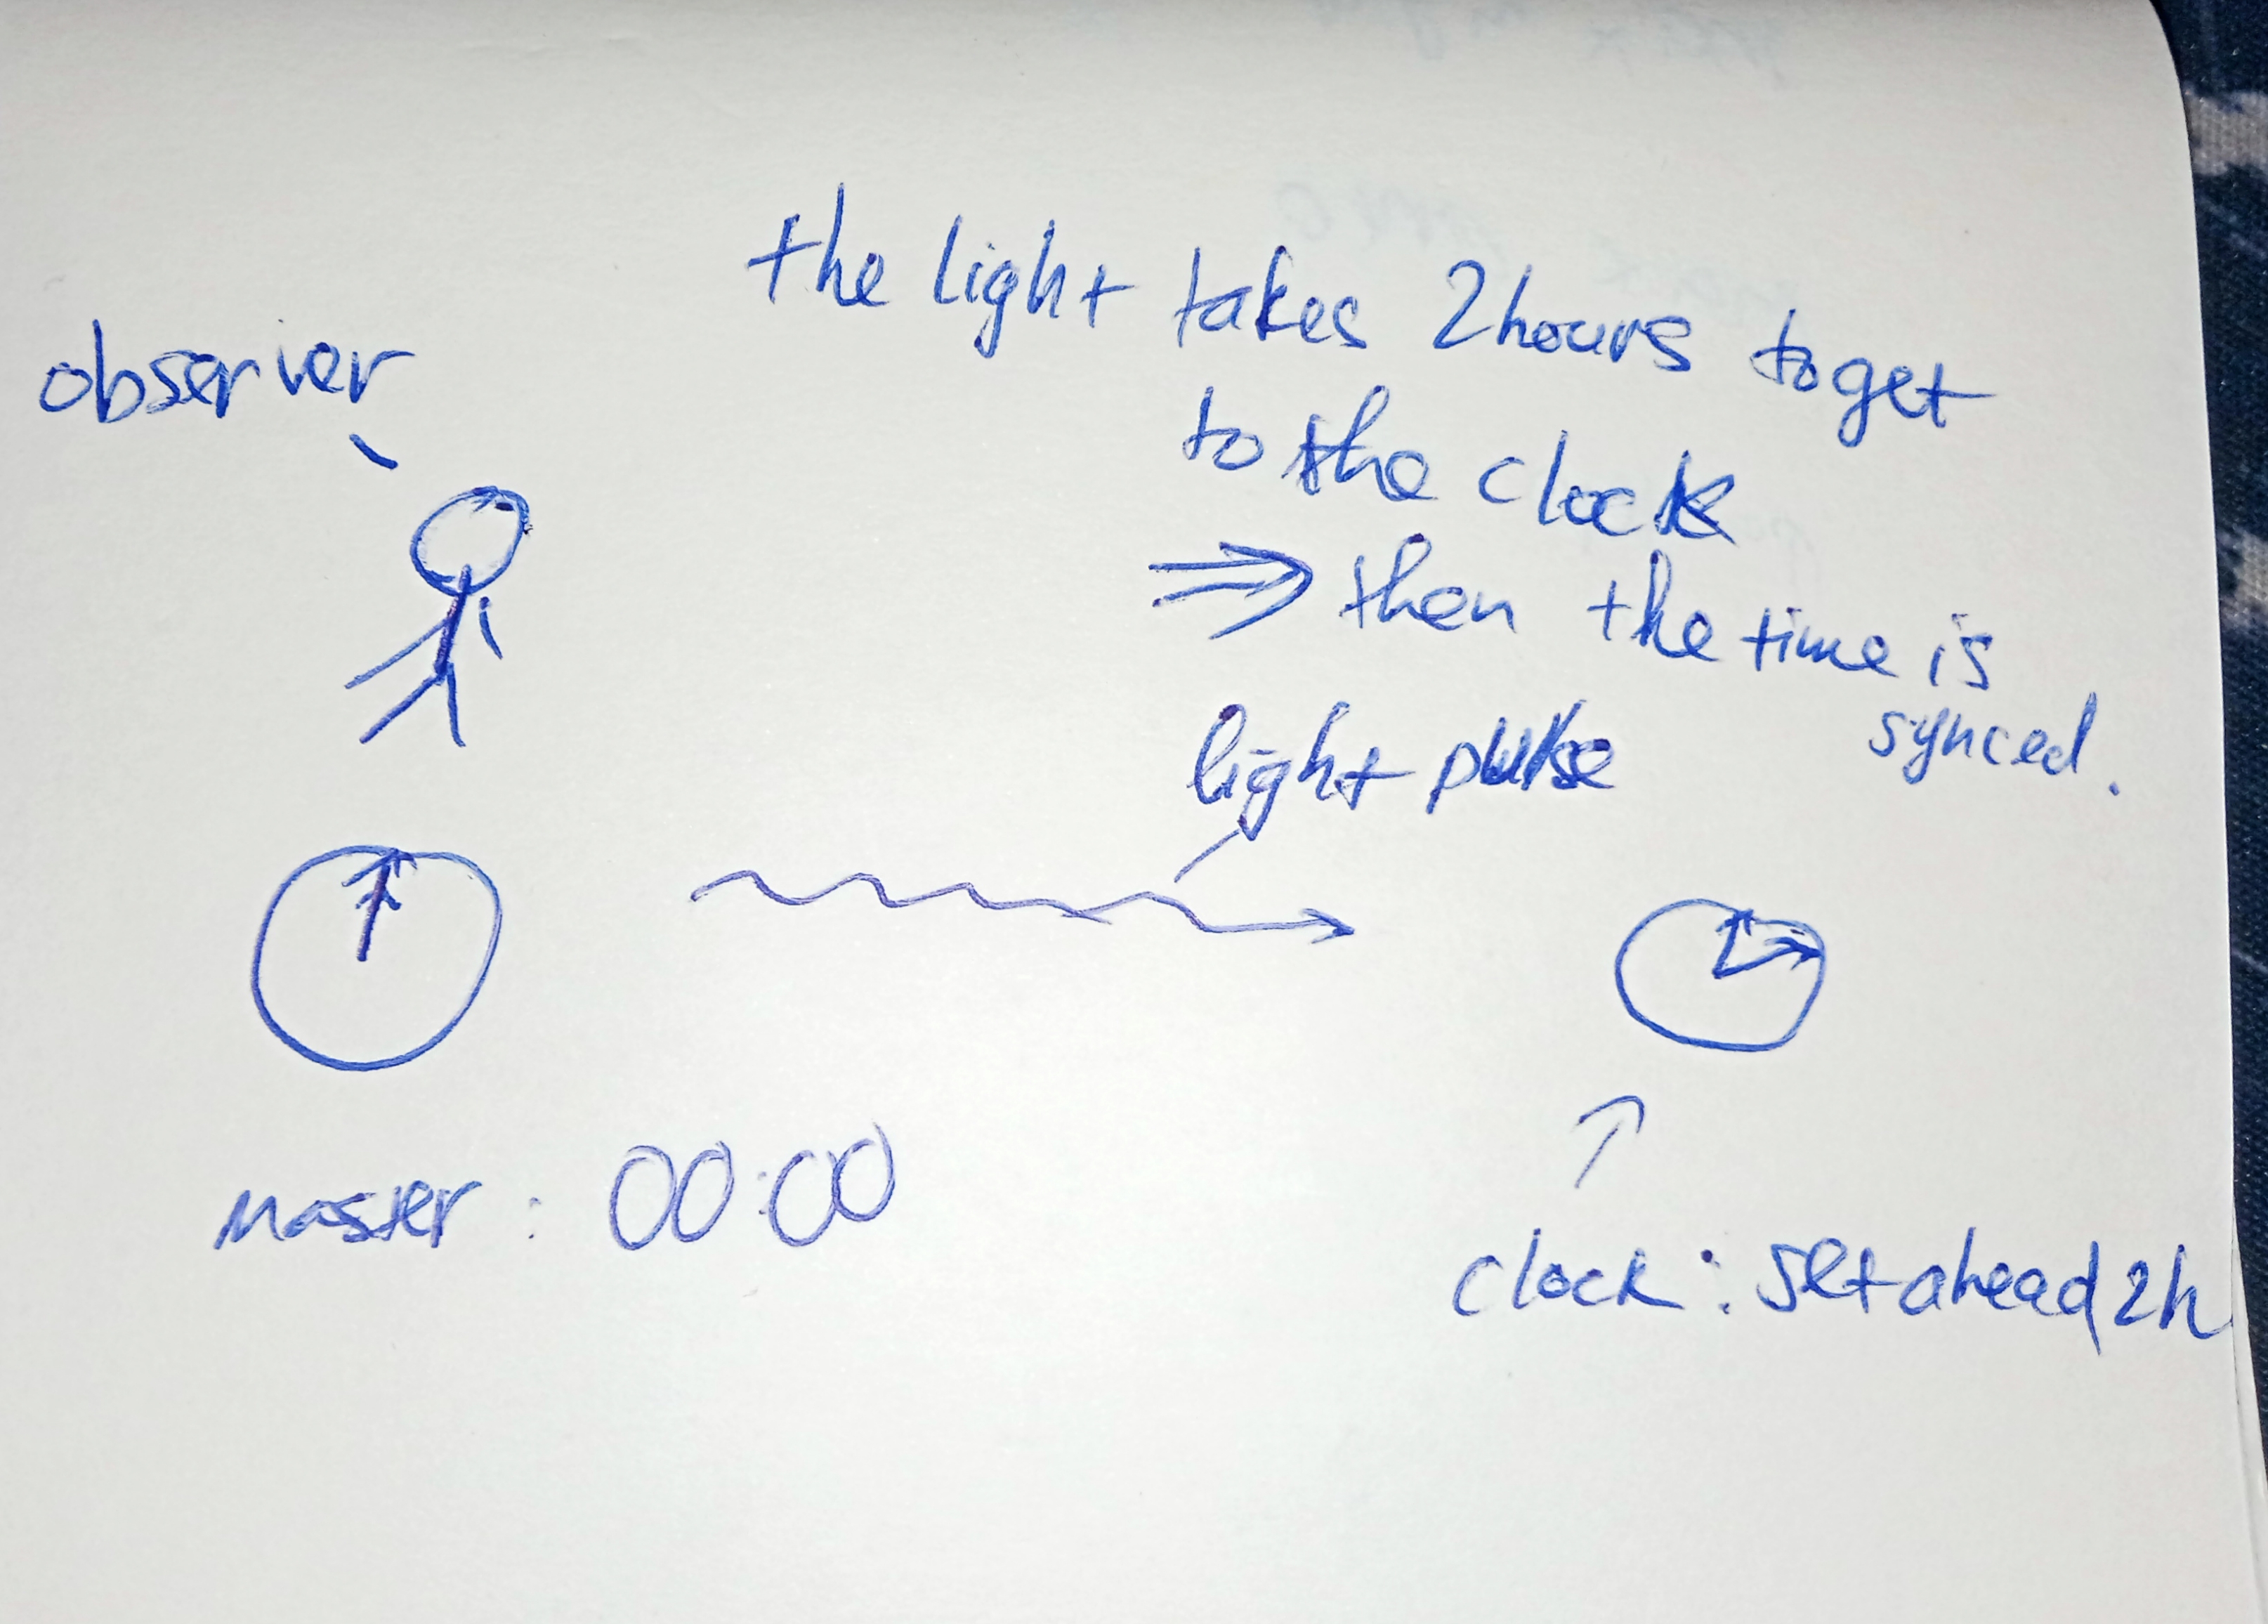 the light takes 2hours to get
to the clock
⇒ then the time is
synced.
observer
light pulse
master : 00:00
clock : set ahead 2h